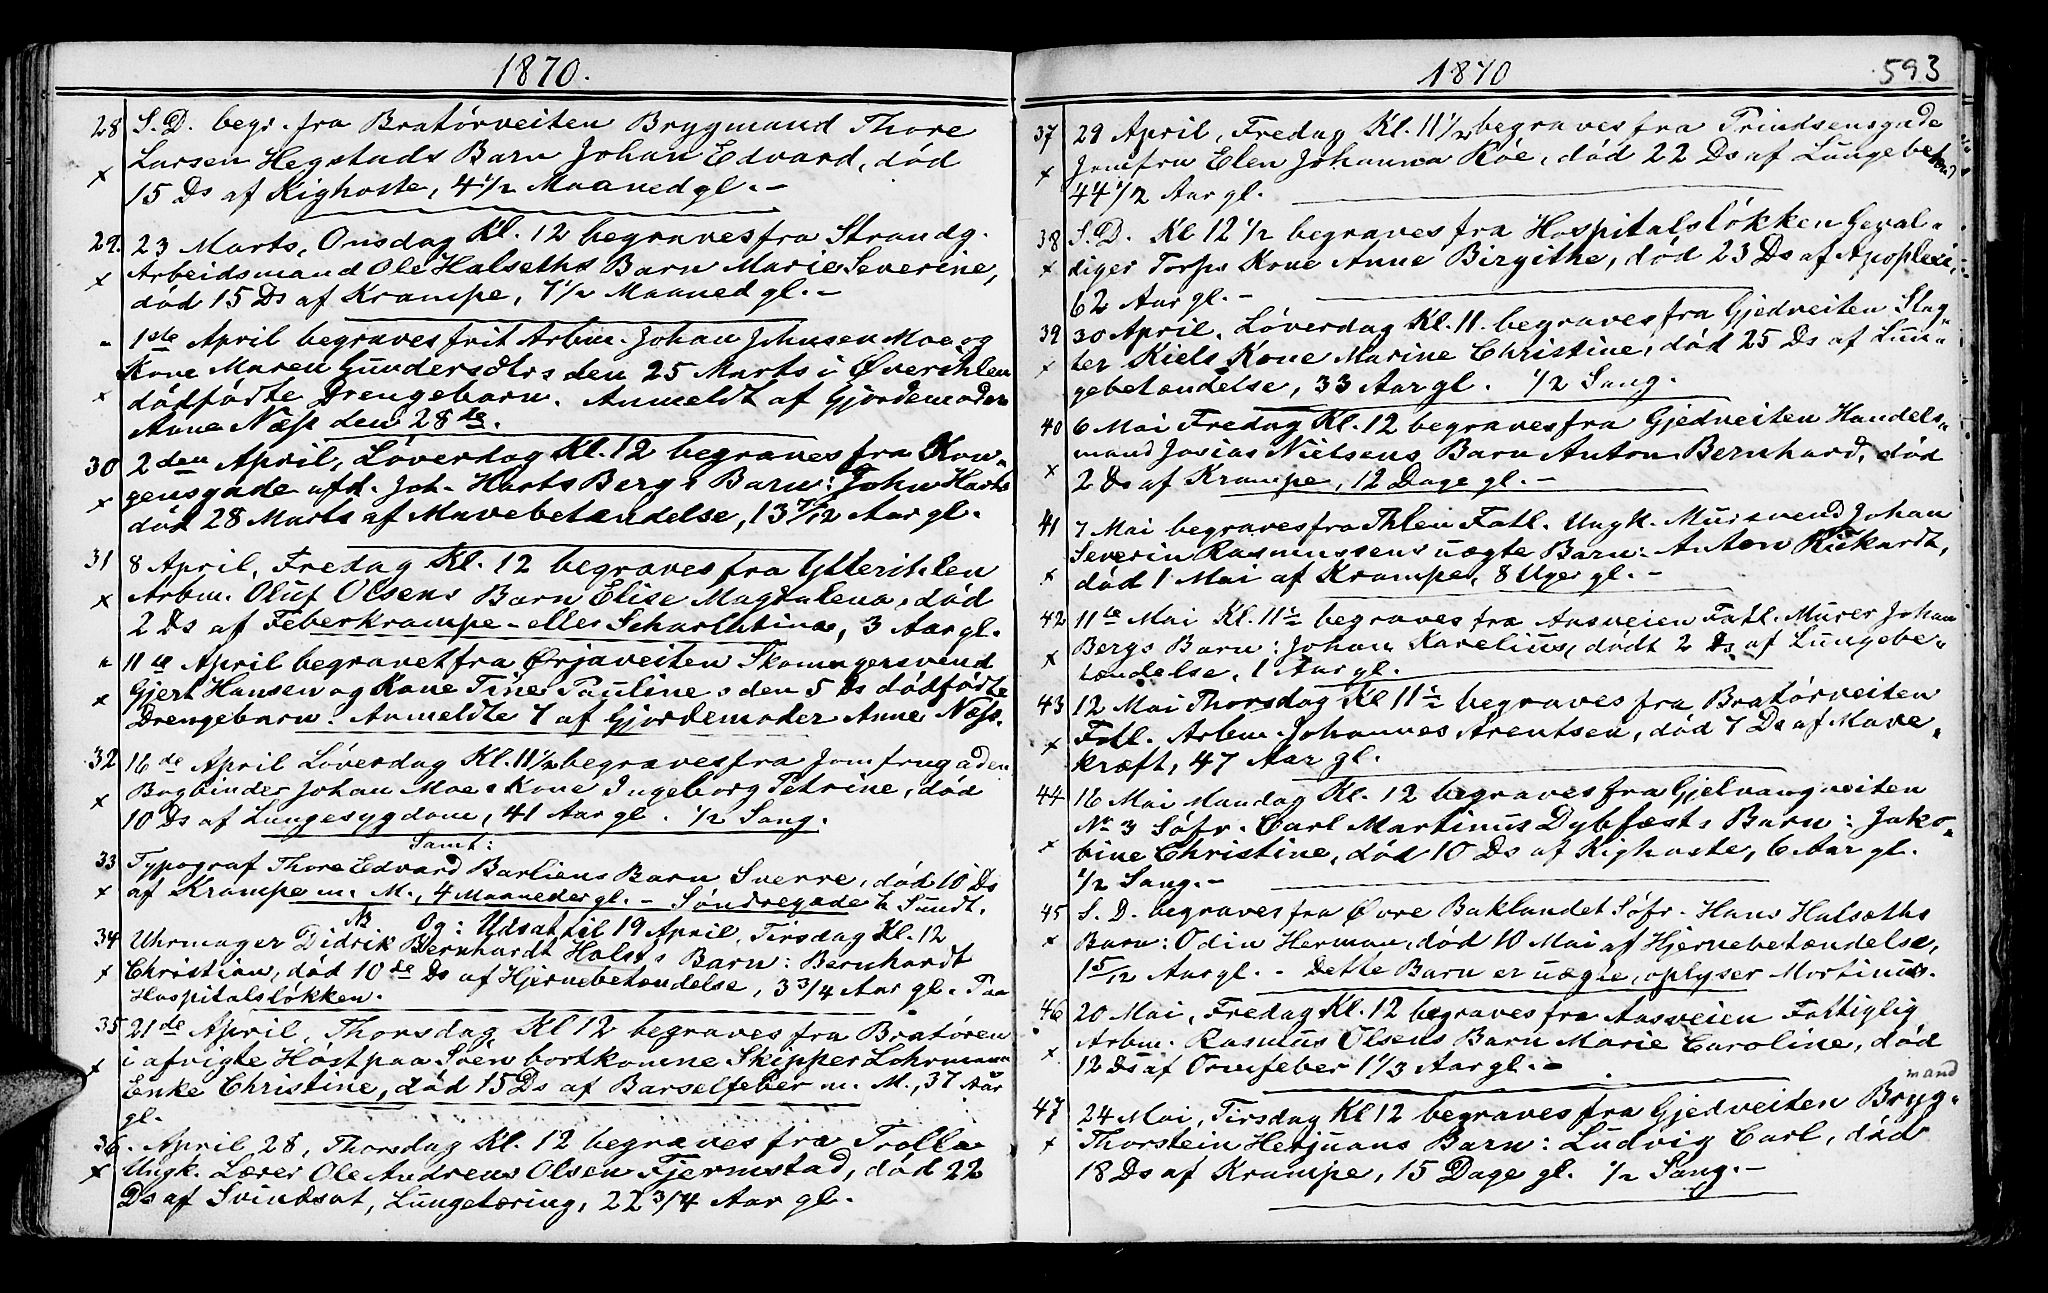 1870.
28 S.D. begr. fra Bratörveiten Brygmand Thore
Larsen Hegstads Barn Johan Edvard, död
x 15 Ds af Kighoste, 4 1/2 Maaned gl. –
29. 23 Marts, Onsdag Kl. 12 begraves fra Strandg.
x Arbeidsmand Ole Halseths Barn Marie Severine,
död 15 Ds af Krampe, 7 1/2 Maaned gl. –
" 1ste April begraves frit Arbm. Johan Johnsen Moe og
Kone Maren Gundersdtrs den 25 Marts i Øvre Ihlen
x dödfödte Drengebarn. Anmeldt af Gjordemoder
Anne Næss den 28de.
30 2den April, Löverdag Kl. 12 begraves fra Kon-
x gensgade afd. Joh. Harts Bergs Barn: John Harts
död 28 Marts af Mavebetændelse, 13 7/12 Aar gl.
31 8 April, Fredag Kl. 12 begraves fra Ytterihlen
x Arbm. Oluf Olsens Barn Elise Magdalena, död
2 Ds af Feberkrampe – eller Scharlatina, 3 Aar gl.
" 11te April begravet fra Ørjaveiten Skomagersvend
x Gjert Hansen og Kone Tine Pauline's den 5 Ds dödfödte
Drengebarn. Anmeldte 7 af Gjordemoder Anne Næss.
32 16de April Löverdag Kl. 11 1/2 begraves fra Jomfrugaden
x Bogbinder Johan Moes Kone Ingeborg Petrine, död
10 Ds af Lungesygdom, 41 Aar gl. 1/2 Sang.
Samt:
33 Typograf Thore Edvard Barliens Barn Sverre, död 10 Ds
x af Krampe m. M., 4 Maaneder gl. – Söndregade
NB Og: Udsat til 19 April, Tirsdag Kl. 12
34 Uhrmager Didrik Bernhardt Holsts Barn: Bernhardt
x Christian, död 10de Ds af Hjernebetændelse, 3 3/4 Aar gl. Paa
Hospitalslökken.
35 21de April, Thorsdag Kl 12 begraves fra Bratören
x i afvigte Höst paa Söen bortkomne Skipper Lohrmann
Enke Christine, död 15 Ds af Barselfeber m. M., 37 Aar
gl.
36. April 28, Thorsdag Kl. 12 begraves fra Trolla
x Ungk. Lærer Ole Andreas Olsen Fjermstad, död 22
Ds af Svindsot, Lungetæring, 22 3/4 Aar gl.
1870 593
37 29 April, Fredag Kl. 11 1/2 begraves fra Prindsensgade
x Jomfru Elen Johanna Röe, död 22 Ds af Lungebetænd
44 1/2 Aar gl.
38 S.D. Kl 12 1/2 begraves fra Hospitalslökken Geval-
x diger Torps Kone Anne Birgithe, död 23 Ds af Apoplexi,
62 Aar gl. –
39 30 April. Löverdag Kl. 11. begraves fra Gjedveiten Slag-
x ter Kiels Kone Marine Christine, död 25 Ds af Lun-
gebetændelse, 33 Aar gl. 1/2 Sang.
40 6 Mai Fredag Kl. 12 begraves fra Gjedveiten Handels-
x mand Josias Nielsens Barn Anton Bernhard, död
2 Ds af Krampe, 12 Dage gl. –
41 7 Mai begraves fra Ihlen Fatl. Ungk. Mursvend Johan
Severin Rasmussens uægte Barn: Anton Rickardt,
x död 1 Mai af Krampe, 8 Uger gl. –
42 11te Mai Kl. 11 1/2 begraves fra Aasveien Fatl. Murer Johan
x Bergs Barn: Johan Karelius, dödt 2 Ds af Lungebe-
tændelse, 1 Aar gl.
43 12 Mai Thorsdag Kl 11 1/2 begraves fra Bratörveiten
x Fatl. Arbm. Johannes Arentsen, död 7 Ds af Mave-
kræft, 47 Aar gl.
44 16 Mai Mandag Kl. 12 begraves fra Gjelvangveiten
No 3 Söfr. Carl Martinus Dybfæsts Barn: Jako-
x bine Christine, död 10 Ds af Kighoste, 6 Aar gl.
1/2 Sang. –
45 S.D. begraves fra Øvre Baklandet Söfr. Hans Halseths
x Barn: Odin Herman, död 10 Mai af Hjernebetændelse,
1 5/12 Aar gl. – Dette Barn er uægte, oplyser Mortinus.
46 20 Mai, Fredag Kl. 12 begraves fra Aasveien Fattiglig
x Arbm. Rasmus Olsens Barn Marie Caroline, död
12 Ds af Ormfeber 1 1/3 Aar gl. –
mand
47 24 Mai, Tirsdag Kl 12 begraves fra Gjedveiten Bryg-
x Thorstein Herjuans Barn: Ludvig Carl, död
18 Ds af Krampe, 15 Dage gl. 1/2 Sang. –